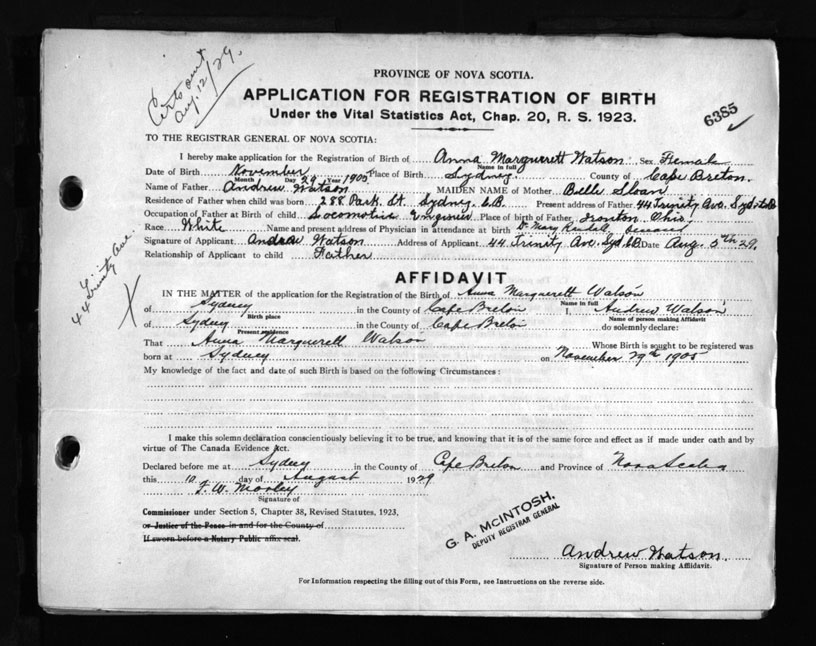 Certs out
Aug. 12/29.
PROVINCE OF NOVA SCOTIA.
APPLICATION FOR REGISTRATION OF BIRTH
Under the Vital Statistics Act, Chap. 20, R. S. 1923.
6385
TO THE REGISTRAR GENERAL OF NOVA SCOTIA:
I hereby make application for the Registration of Birth of Anna Marguerett Watson Sex Female
Name in full
Date of Birth November 29 1905 Place of Birth Sydney County of Cape Breton.
Month Day Year
Name of Father Andrew Watson MAIDEN NAME of Mother Belle Sloan
Residence of Father when child was born 288 Park St. Sydney C.B. Present address of Father 44 Trinity Ave. Syd
Occupation of Father at Birth of child Locomotive Engineer Place of birth of Father Ironton Ohio
Race White Name and present address of Physician in attendance at birth Dr Mary
Signature of Applicant Andrew Watson Address of Applicant 44 Trinity Av. Syd. C.B. Date Aug. 5th 29.
Relationship of Applicant to child Father
44 Trinity Ave.
X
AFFIDAVIT
IN THE MATTER of the application for the Registration of the Birth of Anna Marguerett Watson
Name in full
of Sydney in the County of Cape Breton I, Andrew Watson
Birth place Name of person making Affidavit
of Sydney in the County of Cape Breton do solemnly declare:
Present residence
That Anna Marguerett Watson Whose Birth is sought to be registered was
born at Sydney on November 29th 1905
My knowledge of the fact and date of such Birth is based on the following Circumstances:
I make this solemn declaration conscientiously believing it to be true, and knowing that it is of the same force and effect as if made under oath and by
virtue of The Canada Evidence Act.
Declared before me at Sydney in the County of Cape Breton and Province of Nova Scotia
this 10 day of August 1929
F. W. Morley
Signature of
Commissioner under Section 5, Chapter 38, Revised Statutes, 1923,
or Justice of the Peace in and for the County of
If sworn before a Notary Public affix seal.
G. A. McINTOSH,
DEPUTY REGISTRAR GENERAL
Andrew Watson.
Signature of Person making Affidavit.
For Information respecting the filling out of this Form, see Instructions on the reverse side.